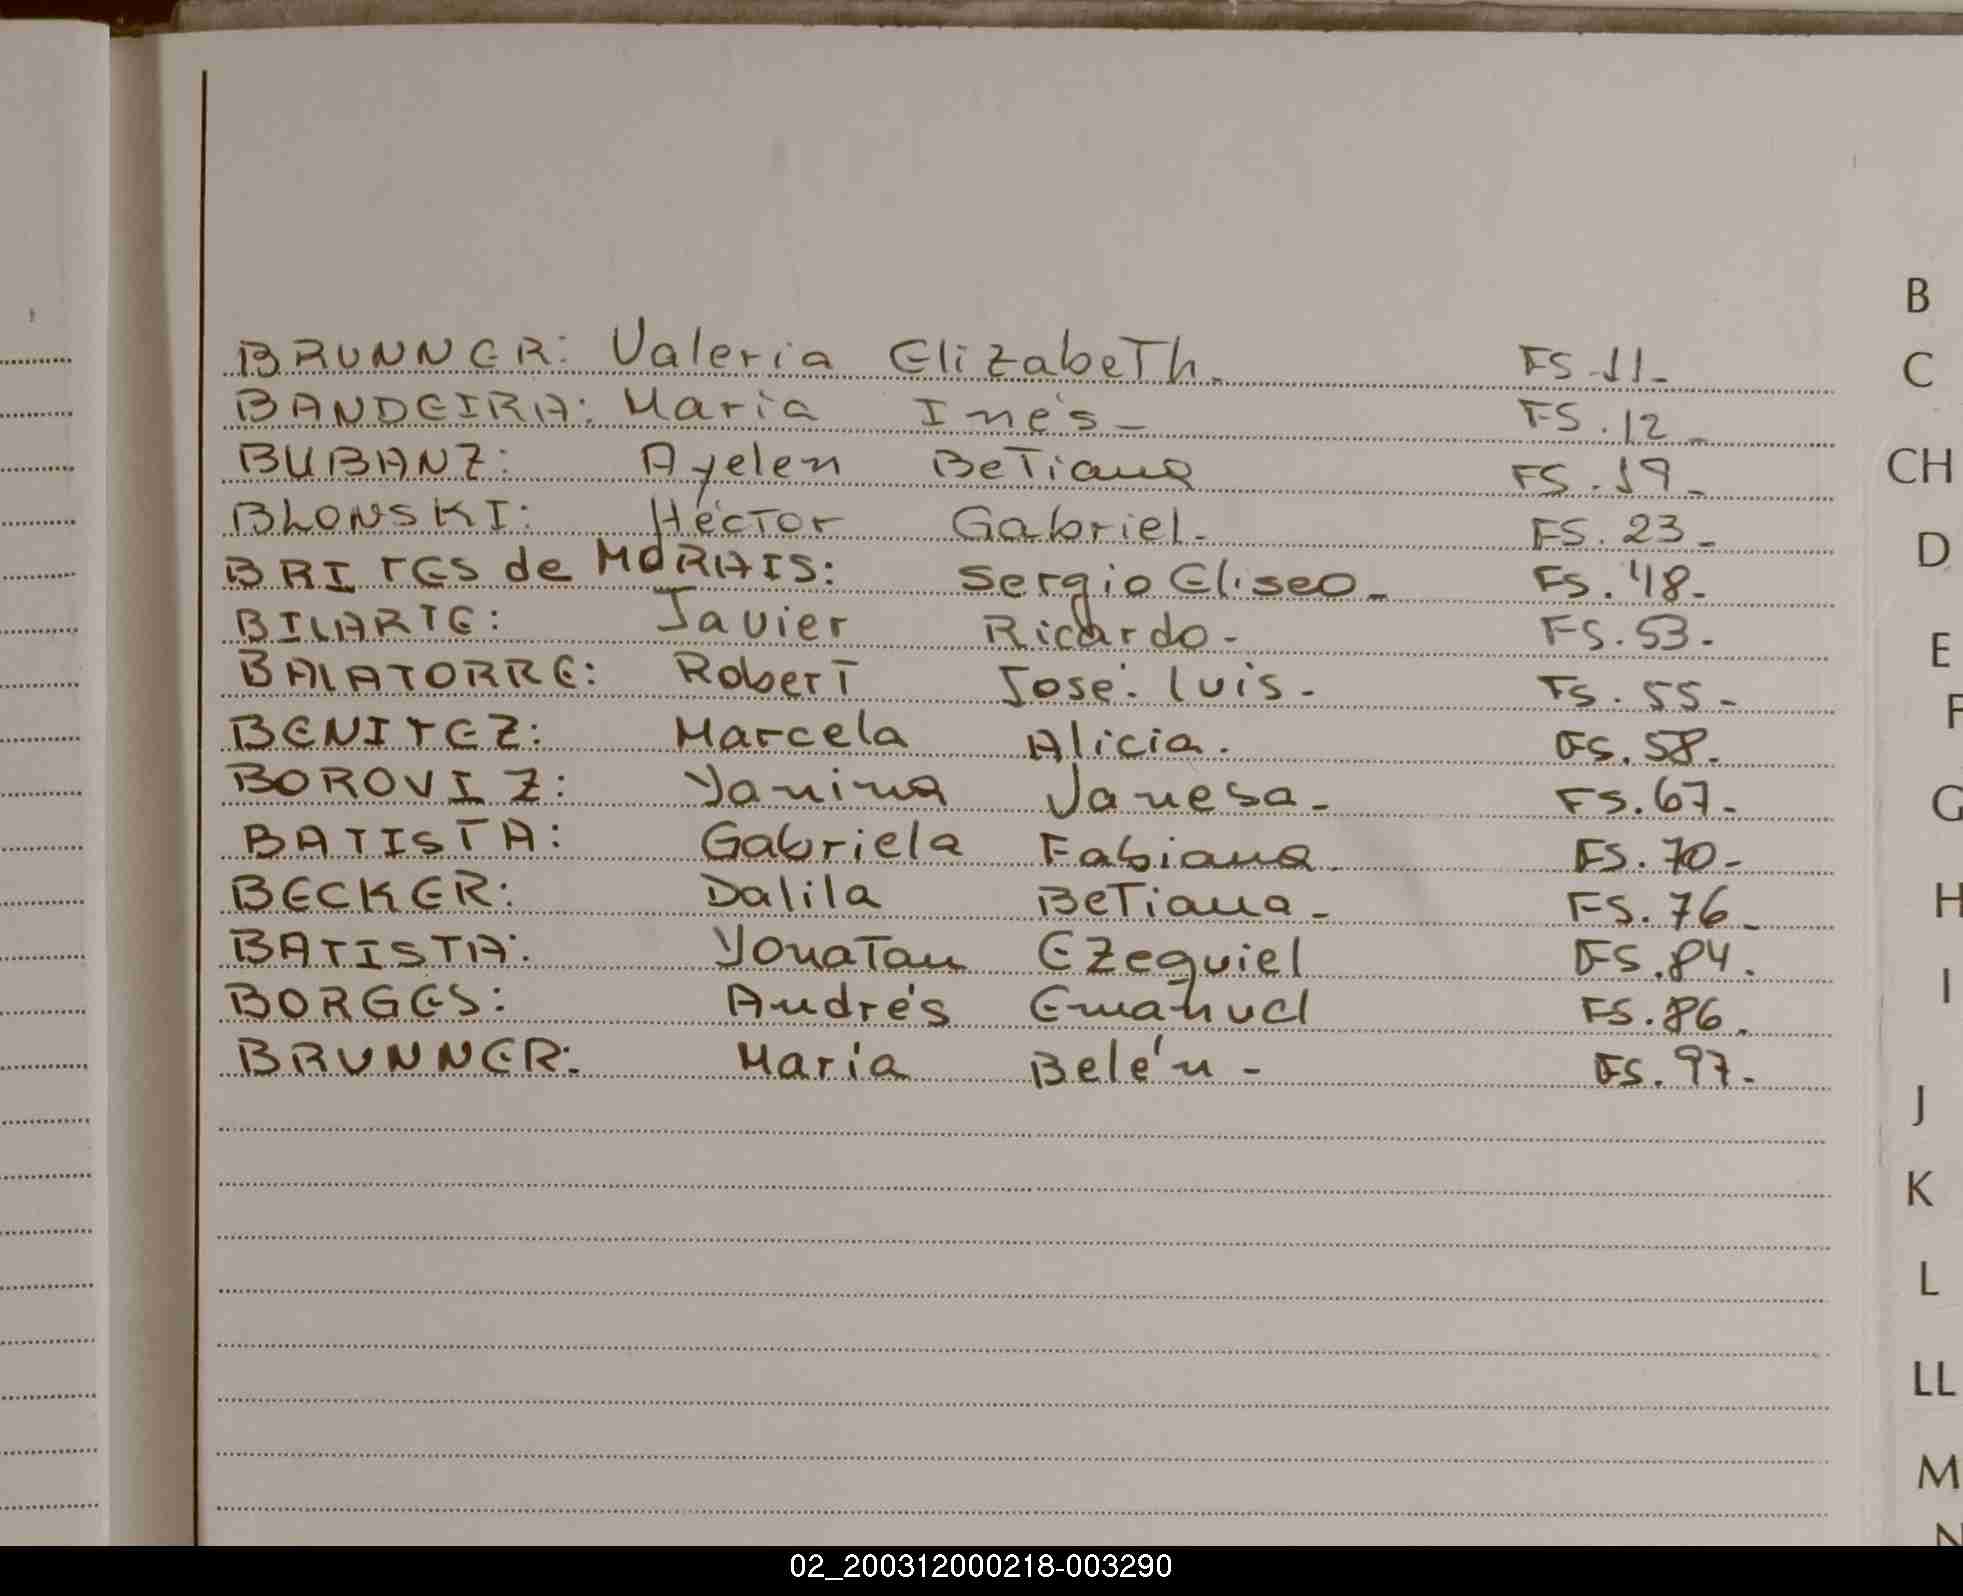 BRUNNER: Valeria Elizabeth. FS.11-
BANDEIRA: Maria Inés- FS.12-
BUBANZ: Ayelen Betiana FS.19-
BLONSKI: Héctor Gabriel- FS.23-
BRITES de MORAIS: Sergio Eliseo- FS.48-
BILARTE: Javier Ricardo- FS.53-
BALATORRE: Robert José Luis- FS.55-
BENITEZ: Marcela Alicia. FS.58.
BOROVIZ: Yanina Vanesa- FS.67-
BATISTA: Gabriela Fabiana. FS.70-
BECKER: Dalila Betiana- FS.76-
BATISTA: Yonatan Ezequiel FS.84.
BORGES: Andrés Emanuel FS.86.
BRUNNER: María Belén- FS.97-
B
C
CH
D
E
F
G
H
I
J
K
L
LL
M
N
02_200312000218-003290